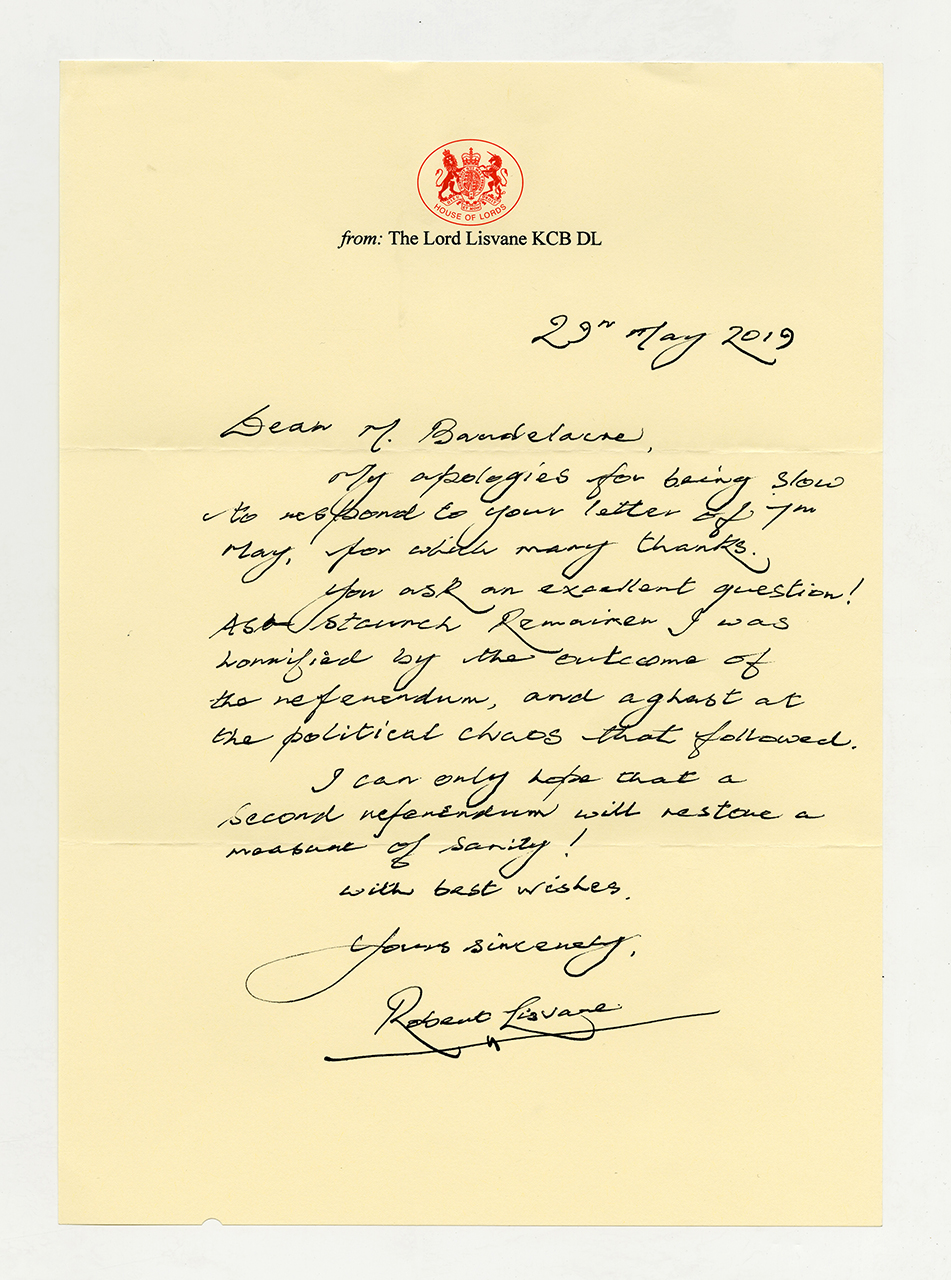 HOUSE OF LORDS
from: The Lord Lisvane KCB DL
29th May 2019
Dear M. Baudelaere,
My apologies for being slow
to respond to your letter of 7th
May, for which many thanks.
You ask an excellent question!
As a staunch Remainer I was
horrified by the outcome of
the referendum, and aghast at
the political chaos that followed.
I can only hope that a
second referendum will restore a
measure of sanity!
With best wishes.
Yours sincerely,
Robert Lisvane